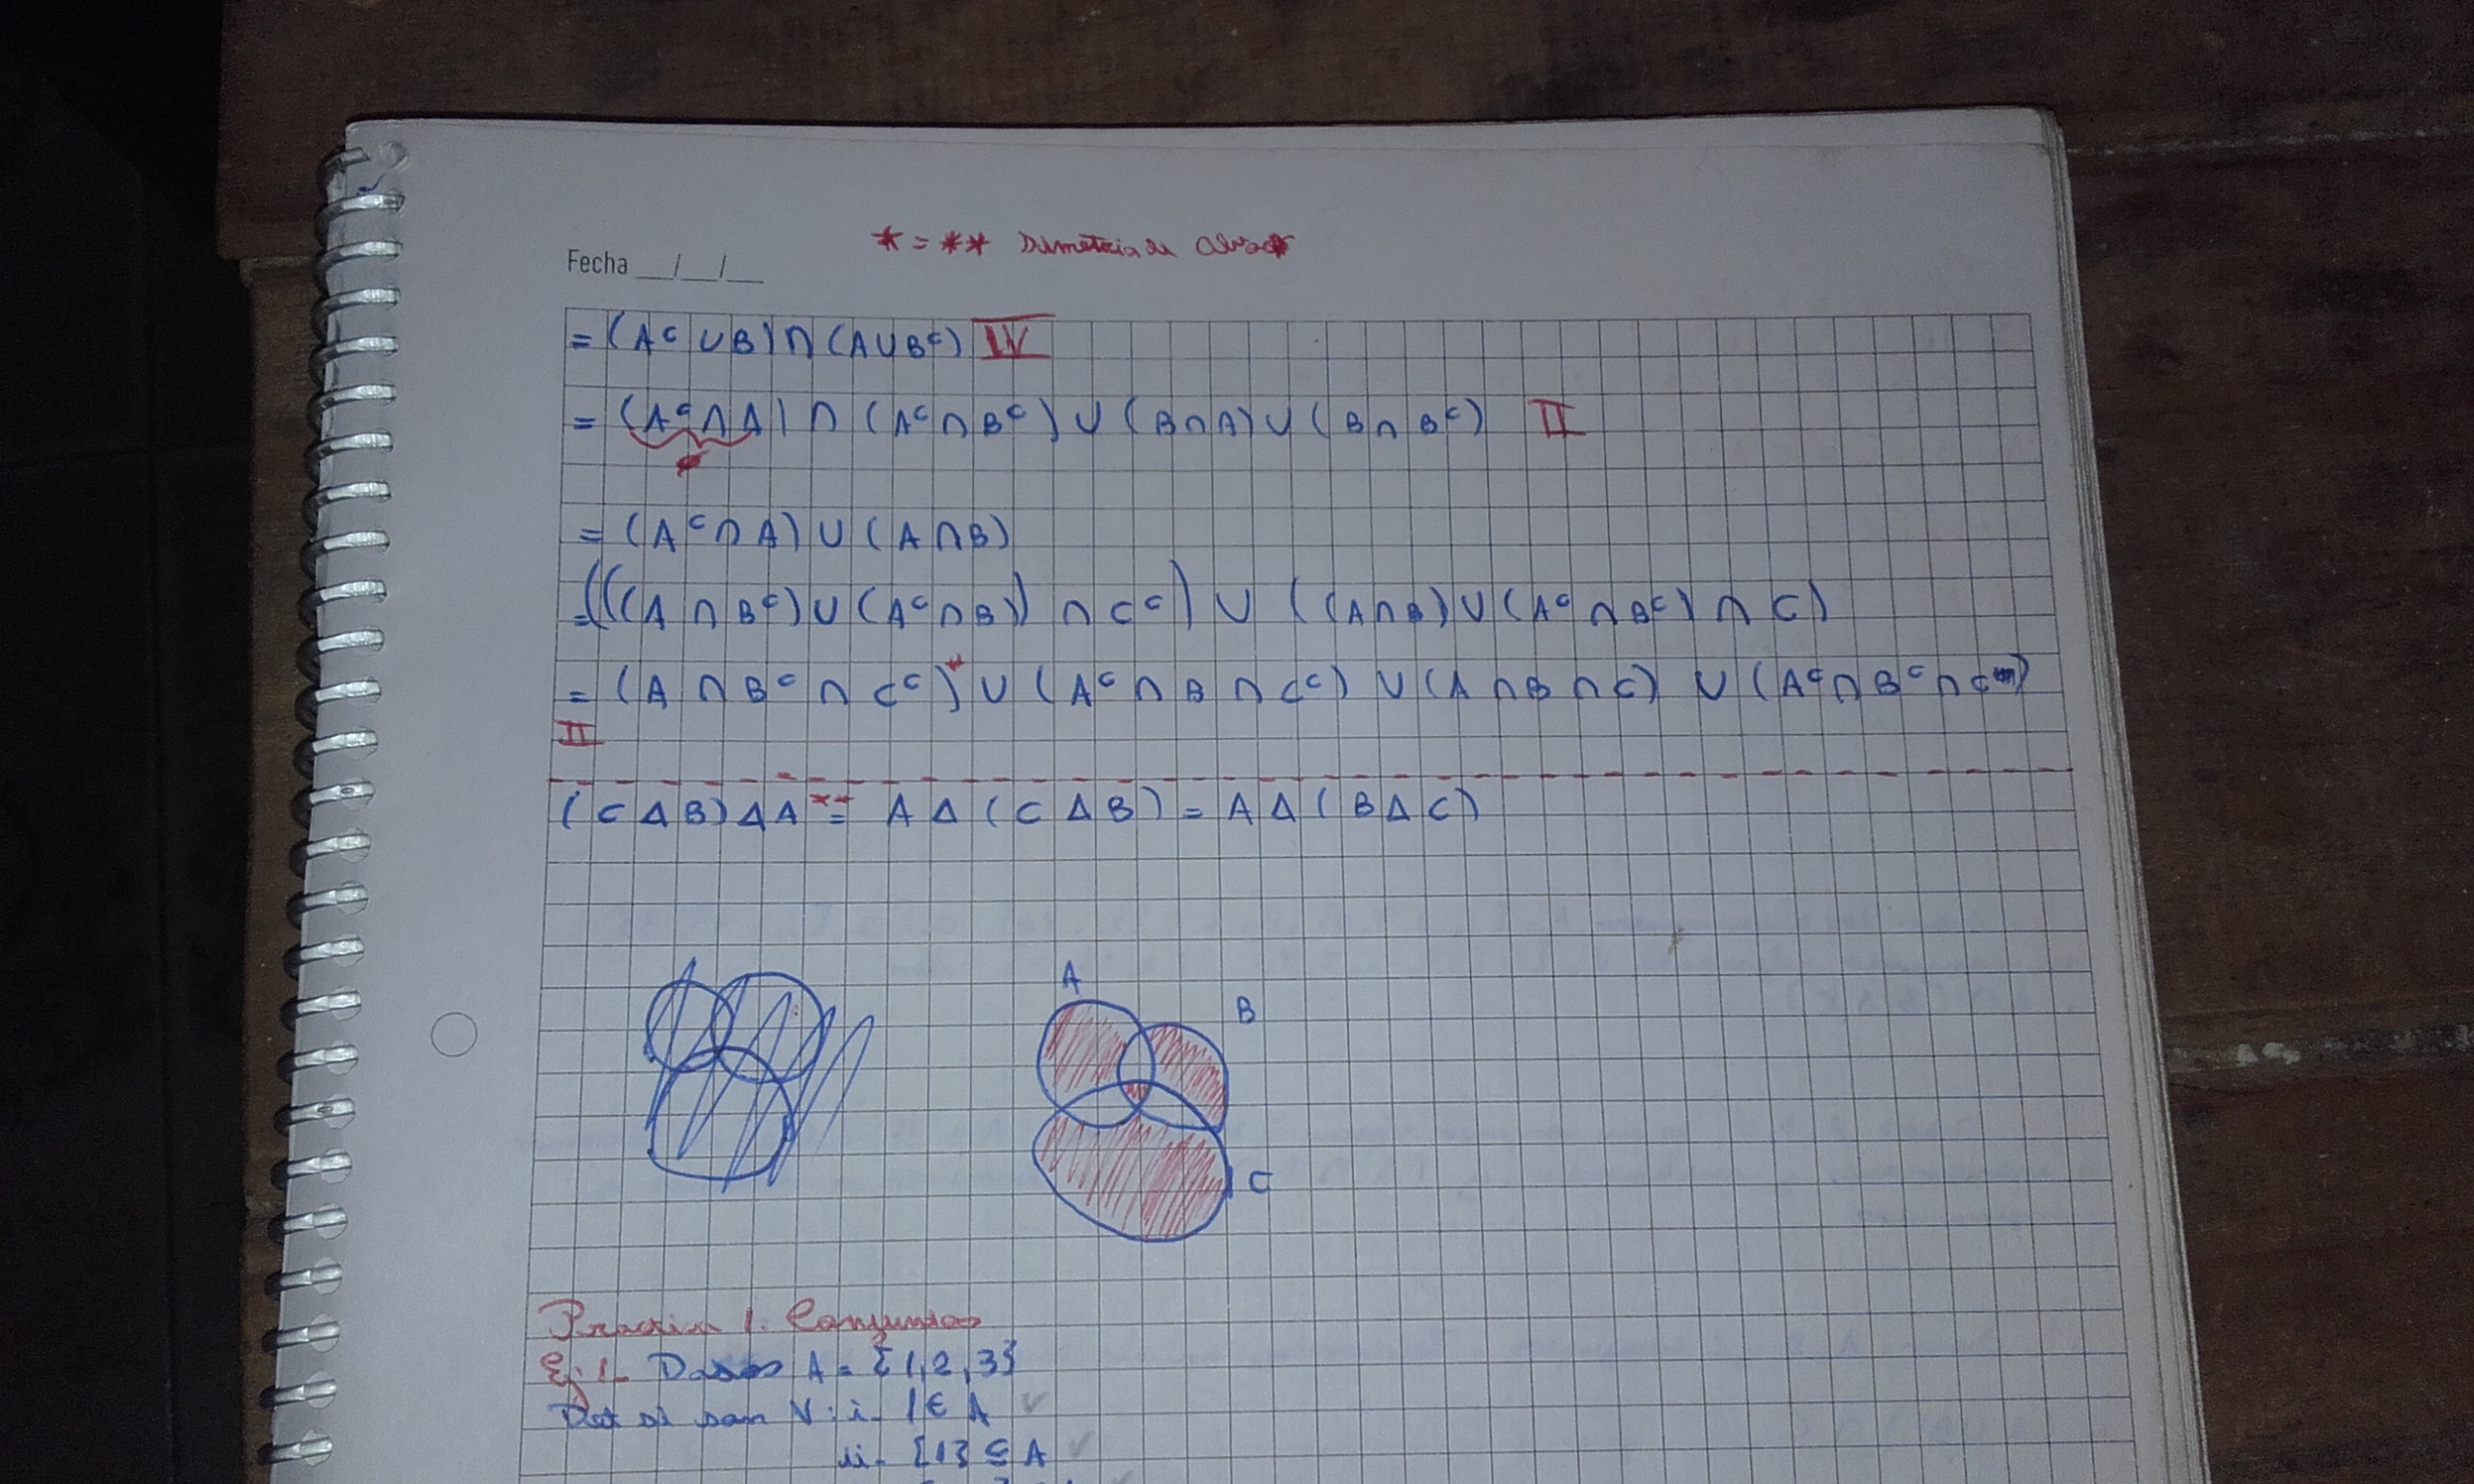 * = **
Fecha __/__/__
= (Aᶜ ∪ B) ∩ (A ∪ Bᶜ) IV
= (Aᶜ ∩ A) ∩ (Aᶜ ∩ Bᶜ) ∪ (B ∩ A) ∪ (B ∩ Bᶜ) II
= (Aᶜ ∩ A) ∪ (A ∩ B)
= (((A ∩ Bᶜ) ∪ (Aᶜ ∩ B)) ∩ Cᶜ) ∪ ((A ∩ B) ∪ (Aᶜ ∩ Bᶜ) ∩ C)
= (A ∩ Bᶜ ∩ Cᶜ)* ∪ (Aᶜ ∩ B ∩ Cᶜ) ∪ (A ∩ B ∩ C) ∪ (Aᶜ ∩ Bᶜ ∩ C)
II
(C Δ B) Δ A **= A Δ (C Δ B) = A Δ (B Δ C)
A
B
C
Practica 1. Conjuntos
Ej 1- Dados A = {1,2,3}
Det si son V: i- 1 ∈ A ✓
ii- {1} ⊆ A ✓